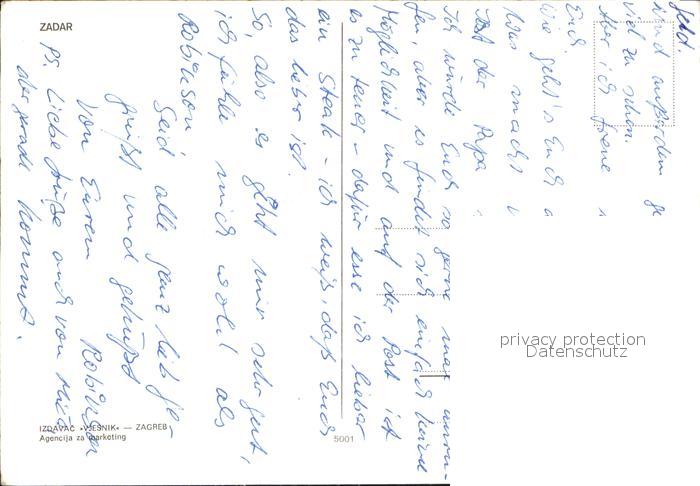 ZADAR
Geld.
sind außerdem ge
viel zu schon.
Aber ich freue
Euch.
Wie geht's Euch a
Was macht
Ist der Papa
Ich würde Euch so gerne mal anru-
fen, aber es findet sich einfach keine
Möglichkeit und auf der Post ist
es zu teuer - dafür esse ich lieber
ein Steak - ich weiß, daß Euch
das lieber ist.
So, also es geht mir sehr gut,
ich fühle mich wohl als
Robinson
Seid alle ganz lieb ge-
grüßt und geküßt
von Eurem Robinson
PS. Liebe Grüße auch von
der grade kommt.
IZDAVAČ »VJESNIK« — ZAGREB
Agencija za marketing
5001
privacy protection
Datenschutz